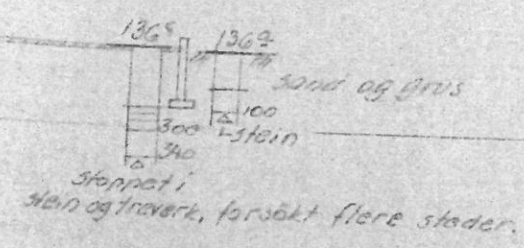 136c 136a
sand og grus
100
stein
300
340
stoppet i
stein og treverk, forsøkt flere steder.